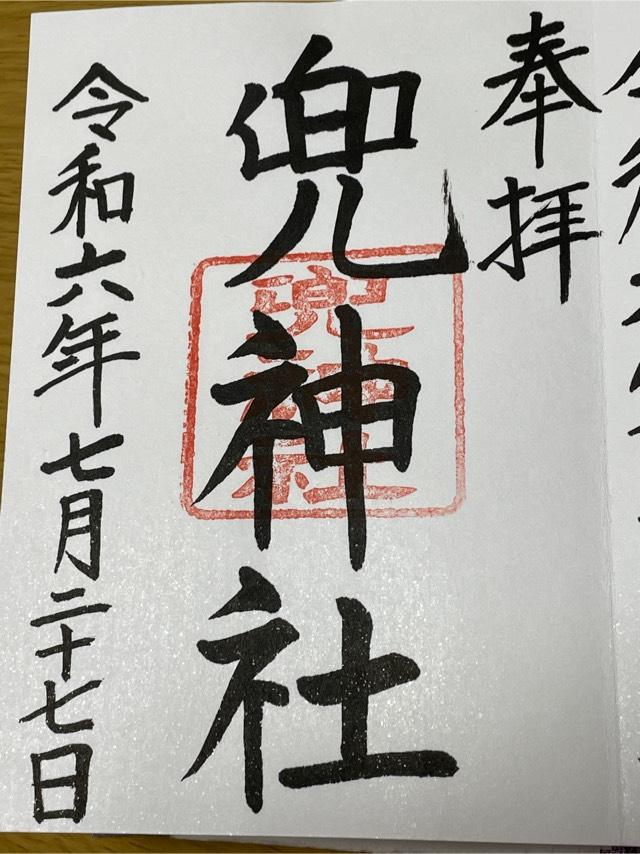 奉拝
兜神社
兜神社
令和六年七月二十七日